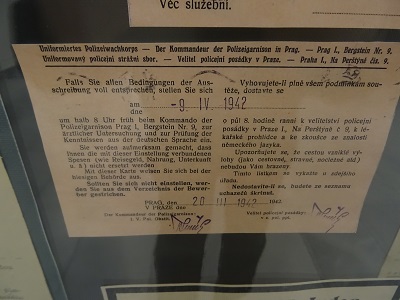 Věc služební.
Uniformiertes Polizeiwachkorps — Der Kommandeur der Polizeigarnison in Prag. — Prag I., Bergstein Nr. 9.
Uniformovaný policejní strážní sbor. — Velitel policejní posádky v Praze. — Praha I., Na Perštýně čís. 9.
Falls Sie allen Bedingungen der Aus-
schreibung voll entsprechen, stellen Sie sich
am
dne
-9 IV. 1942
um halb 8 Uhr früh beim Kommando der
Polizeigarnison Prag I., Bergstein Nr. 9, zur
ärztlicher Untersuchung und zur Prüfung der
Kenntnissen aus der deutschen Sprache ein.
Sie werden aufmerksam gemacht, dass
Ihnen die mit dieser Einstellung verbundenen
Spesen (wie Reisegeld, Nahrung, Unterkunft
u. ä.) nicht ersetzt werden
Mit dieser Karte weisen Sie sich bei der
hiesigen Behörde aus.
Sollten Sie sich nicht einstellen, wer-
den Sie aus dem Verzeichnis der Bewer-
ber gestrichen.
Vyhovujete-li plně všem podmínkám sou-
těže, dostavte se
o půl 8. hodině ranní k velitelství policejní
posádky v Praze I., Na Perštýně č. 9, k lé-
kařské prohlídce a ke zkoušce ze znalosti
německého jazyka.
Upozorňuje se, že cestou vzniklé vý-
lohy (jako cestovné, stravné, nocležné atd.)
nebudou Vám hrazeny
Tímto lístkem se vykažte u zdejšího
úřadu.
Nedostavíte-li se, budete ze seznamu
uchazečů škrtnut.
PRAG, den
V PRAZE dne
20 III 1942
1942
Der Kommandeur der Polizeigarnison:
Velitel policejní posádky:
v. z. pol. por.